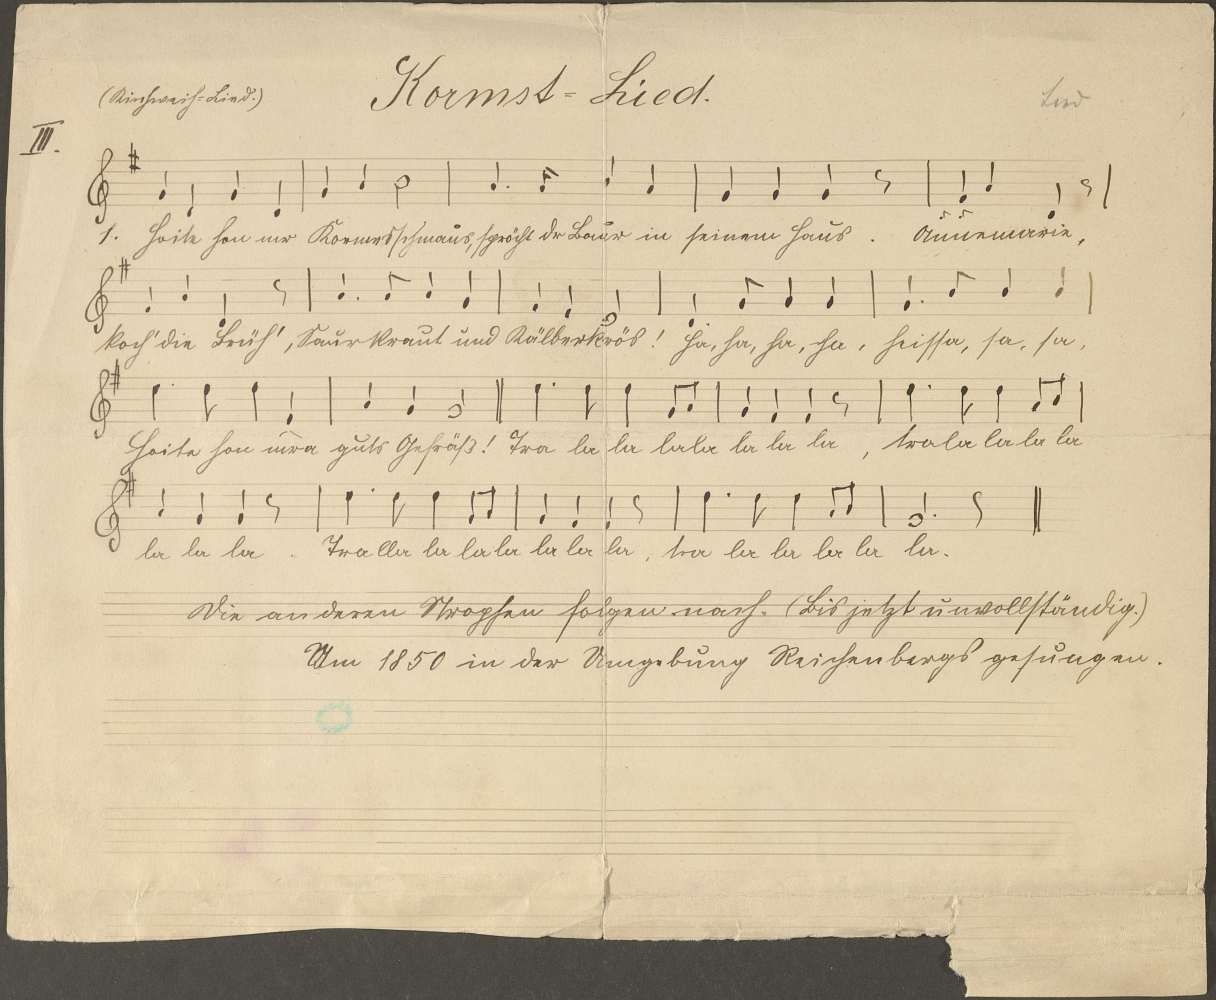 (Kirchweih=Lied.)
Kormst=Lied.
Lied
III.
1. Hoite hon mr Kormesschmaus, sprächt dr Baur in seinem Haus. Annemarie,
koch' die Brüh', Saurkraut und Kälberkrös! Ha, ha, ha, ha, heissa, sa, sa,
Hoite hon mra guts Gefräß! Tra la la lala la la la, trala la la la
la la la. Tralla la lala la la la, tra la la la la la.
Die anderen Strophen folgen nach. (Bis jetzt unvollständig.)
Um 1850 in der Umgebung Reichenbergs gesungen.